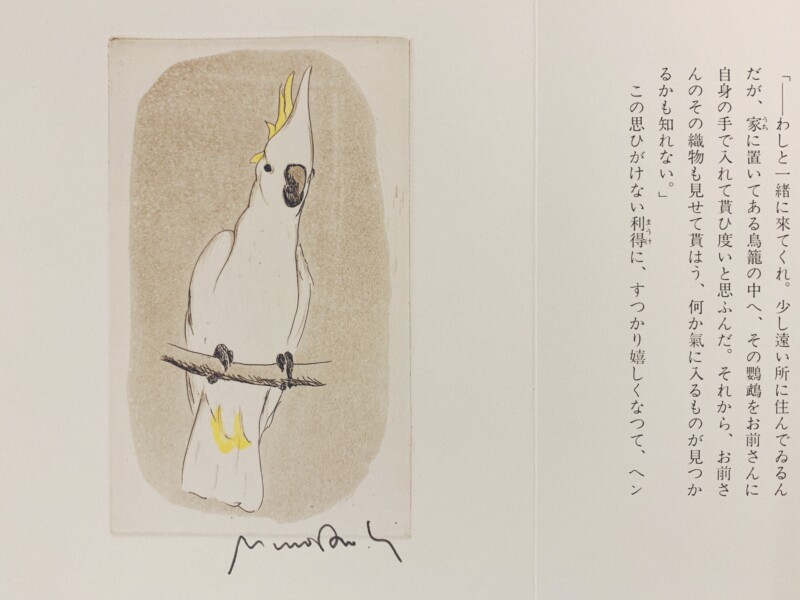 「――わしと一緒に來てくれ。少し遠い所に住んでゐるん
だが、家に置いてある鳥籠の中へ、その鸚鵡をお前さんに
自身の手で入れて貰ひ度いと思ふんだ。それから、お前さ
んのその織物も見せて貰はう、何か氣に入るものが見つか
るかも知れない。」
この思ひがけない利得に、すつかり嬉しくなつて、ヘン